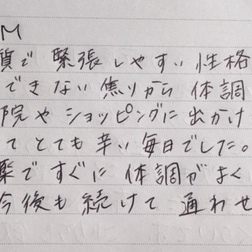 M
質で 緊張しやすい 性格
できない 焦りから 体調
院や ショッピングに 出かけ
て とても 辛い 毎日でした。
薬で すぐに 体調が よく
今後も 続けて 通わせ